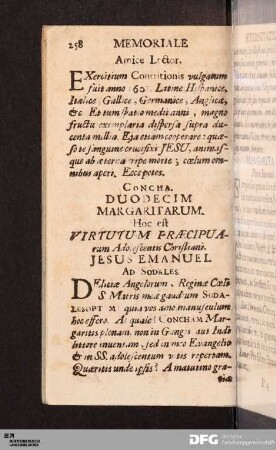 258 MEMORIALE
Amice Lector.
EXercitium Contritionis vulgatum
fuit anno 160 . Latine Hispanice,
Italice, Gallice, Germanice, Anglicè,
&c Et tum spatio medii anni, magno
fructu exemplaria dispersa supra du-
centa millia. Eja etiam cooperare: quæ-
so te sanguine crucifixi JESU, animas-
que ab æterna eripe morte; cœlum om-
nibus aperi. Ecce petes.
CONCHA.
DUODECIM
MARGARITARUM.
Hoc est
VIRTUTUM PRÆCIPUA-
rum Adolescentis Christiani.
JESUS EMANUEL
AD SODALES
DElitiæ Angelorum, Reginæ Cœli
S Matris meæ gaudium SODA-
LES OPTIMI; quia vos amo munusculum
hoc offero. At quale? CONCHAM Mar-
garitis plenam, non in Gangis aut Indi
littore inventam, sed in meo Evangelio
& in SS. adolescentum vitis repertam.
Quæritis unde ipsis? A matutino gra-
DFG Deutsche
Forschungsgemeinschaft